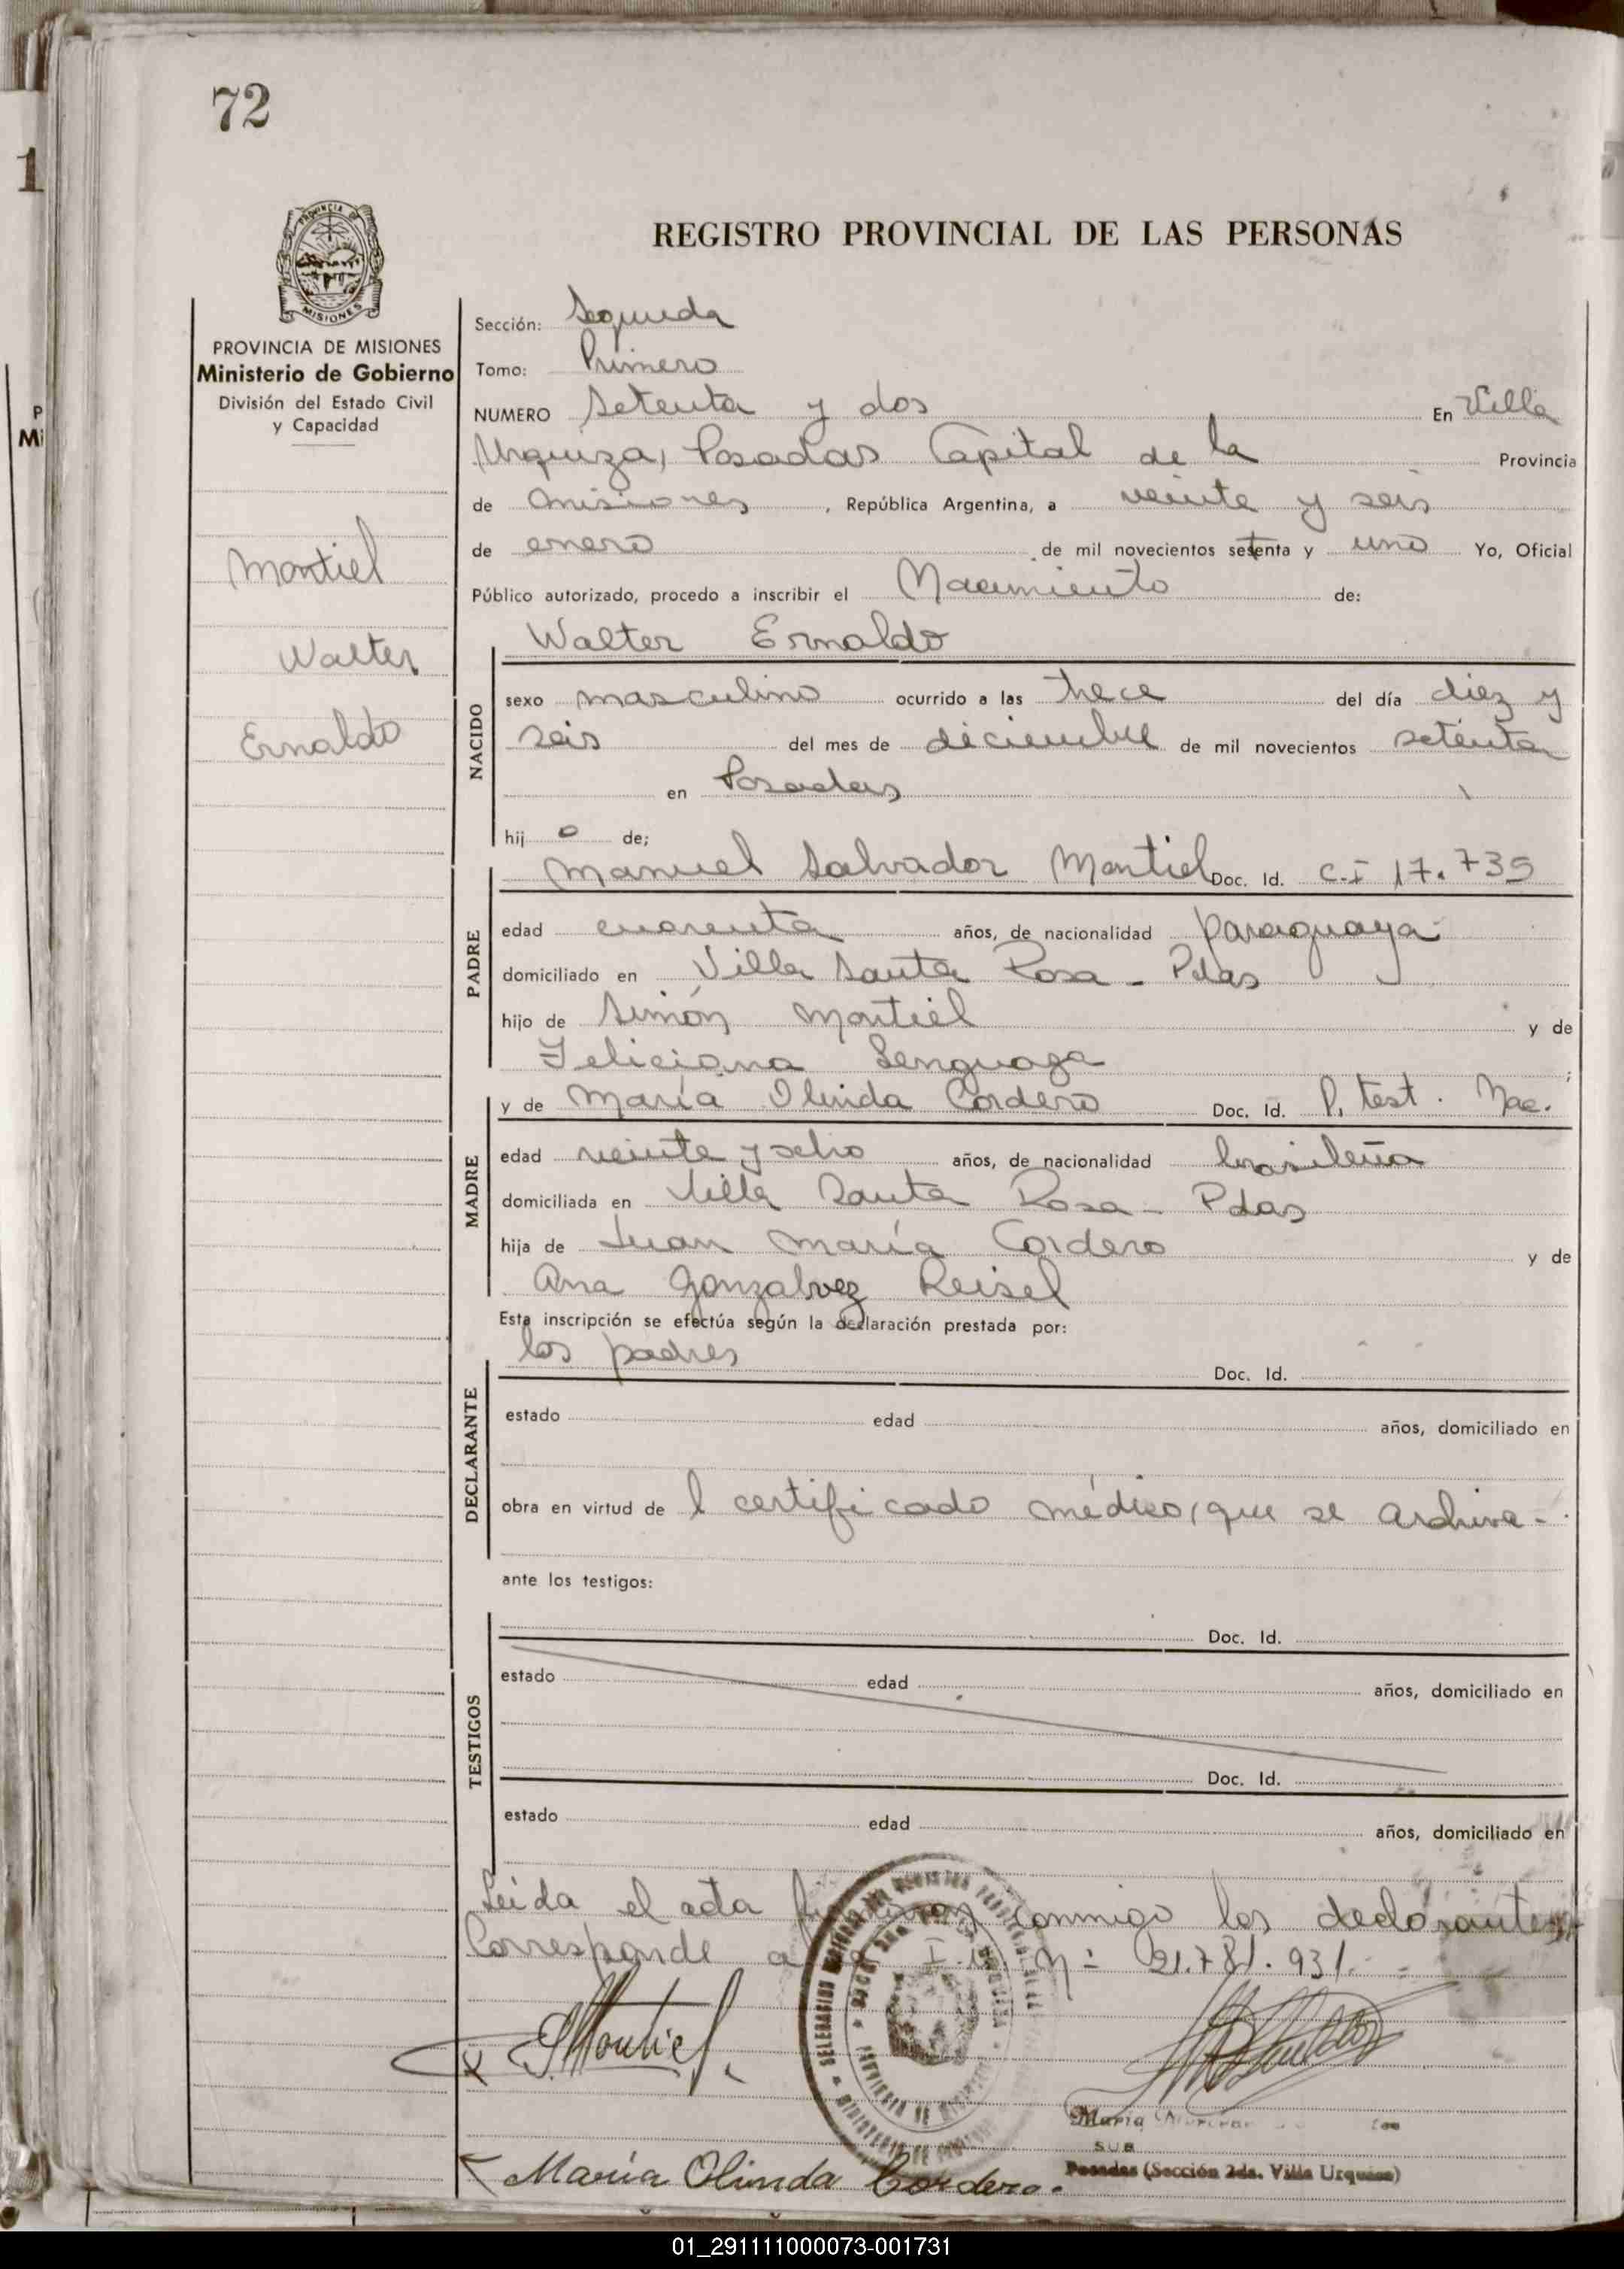 72
1
REGISTRO PROVINCIAL DE LAS PERSONAS
PROVINCIA DE
MISIONES
PROVINCIA DE MISIONES
Ministerio de Gobierno
División del Estado Civil
y Capacidad
P
Mi
Montiel
Walter
Ernaldo
Sección: Segunda
Tomo: Primero
NUMERO Setenta y dos En Villa
Urquiza, Posadas Capital de la Provincia
de Misiones, República Argentina, a veinte y seis
de enero de mil novecientos setenta y uno Yo, Oficial
Público autorizado, procedo a inscribir el Nacimiento de:
Walter Ernaldo
NACIDO
sexo masculino ocurrido a las trece del día diez y
seis del mes de diciembre de mil novecientos setenta
en Posadas
hij o de;
Manuel Salvador Montiel Doc. Id. C.I 17.739
PADRE
edad cuarenta años, de nacionalidad paraguaya
domiciliado en Villa Santa Rosa - Pdas
hijo de Simón Montiel y de
Feliciana Lenguaza ;
y de María Olinda Cordero Doc. Id. P. test. Nac.
MADRE
edad veinte y ocho años, de nacionalidad brasileña
domiciliada en Villa Santa Rosa - Pdas
hija de Juan María Cordero y de
Ana Gonzalvez Reisel
Esta inscripción se efectúa según la declaración prestada por:
los padres Doc. Id.
DECLARANTE
estado edad años, domiciliado en
obra en virtud de l certificado médico, que se archiva -
ante los testigos:
Doc. Id.
TESTIGOS
estado edad años, domiciliado en
Doc. Id.
estado edad años, domiciliado en
Leída el acta firmaron conmigo los declarantes
Corresponde a I. Nº 21.781.931. -
Montiel
María
SUB
Posadas (Sección 2da. Villa Urquiza)
María Olinda Cordero.
01_291111000073-001731